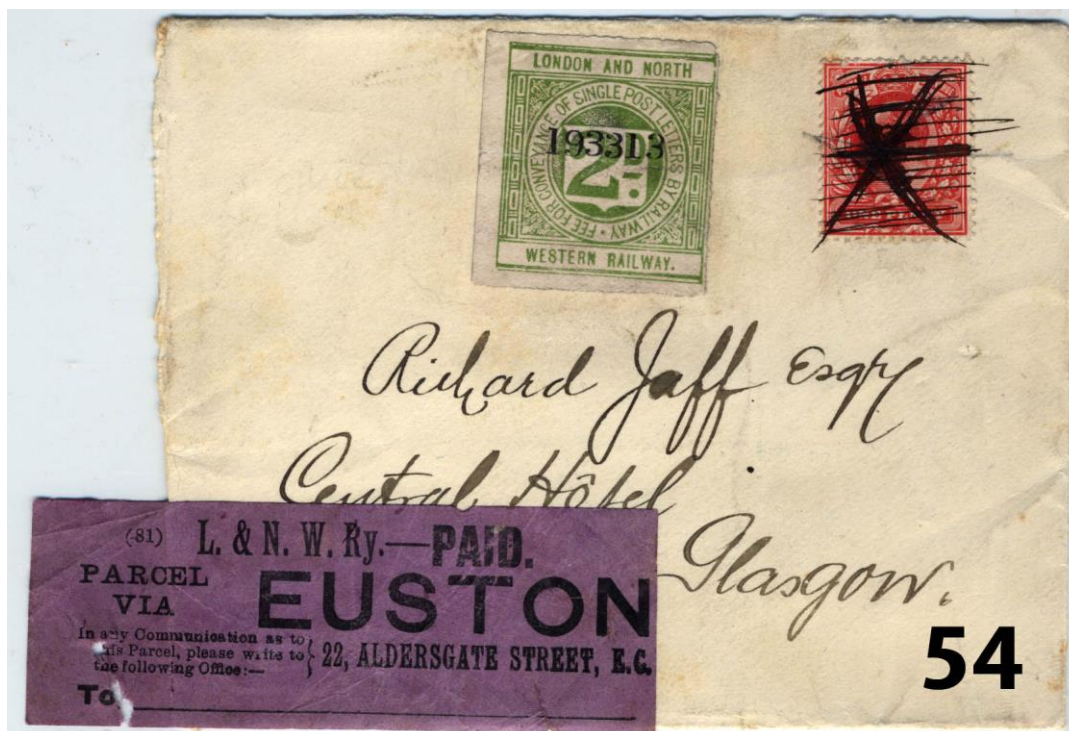 LONDON AND NORTH
FEE FOR CONVEYANCE OF SINGLE POST LETTERS BY RAILWAY
193313
2D.
WESTERN RAILWAY.
Richard Jaff Esqre
Central Hôtel
Glasgow.
(81) L. & N. W. Ry.—PAID.
PARCEL VIA EUSTON
In any Communication as to
this Parcel, please write to
the following Office:—
22, ALDERSGATE STREET, E.C.
To
54